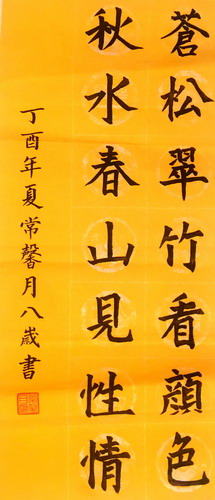 蒼松翠竹看顔色
秋水春山見性情
丁酉年夏常馨月八歲書